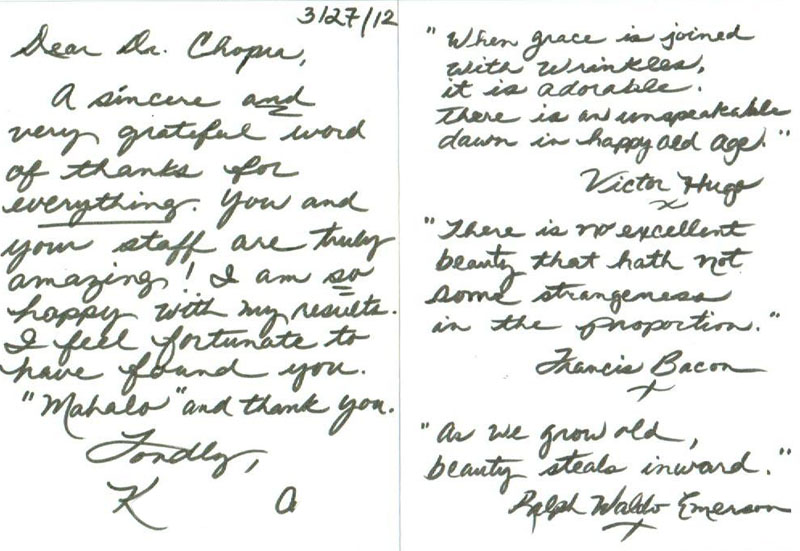 3/27/12
Dear Dr. Chopra,
A sincere and
very grateful word
of thanks for
everything. You and
your staff are truly
amazing! I am so
happy with my results.
I feel fortunate to
have found you.
"Mahalo" and thank you.
Fondly,
K a
"When grace is joined
with wrinkles,
it is adorable.
There is an unspeakable
dawn in happy old age."
Victor Hugo
"There is no excellent
beauty that hath not
some strangeness
in the proportion."
Francis Bacon
"As we grow old,
beauty steals inward."
Ralph Waldo Emerson